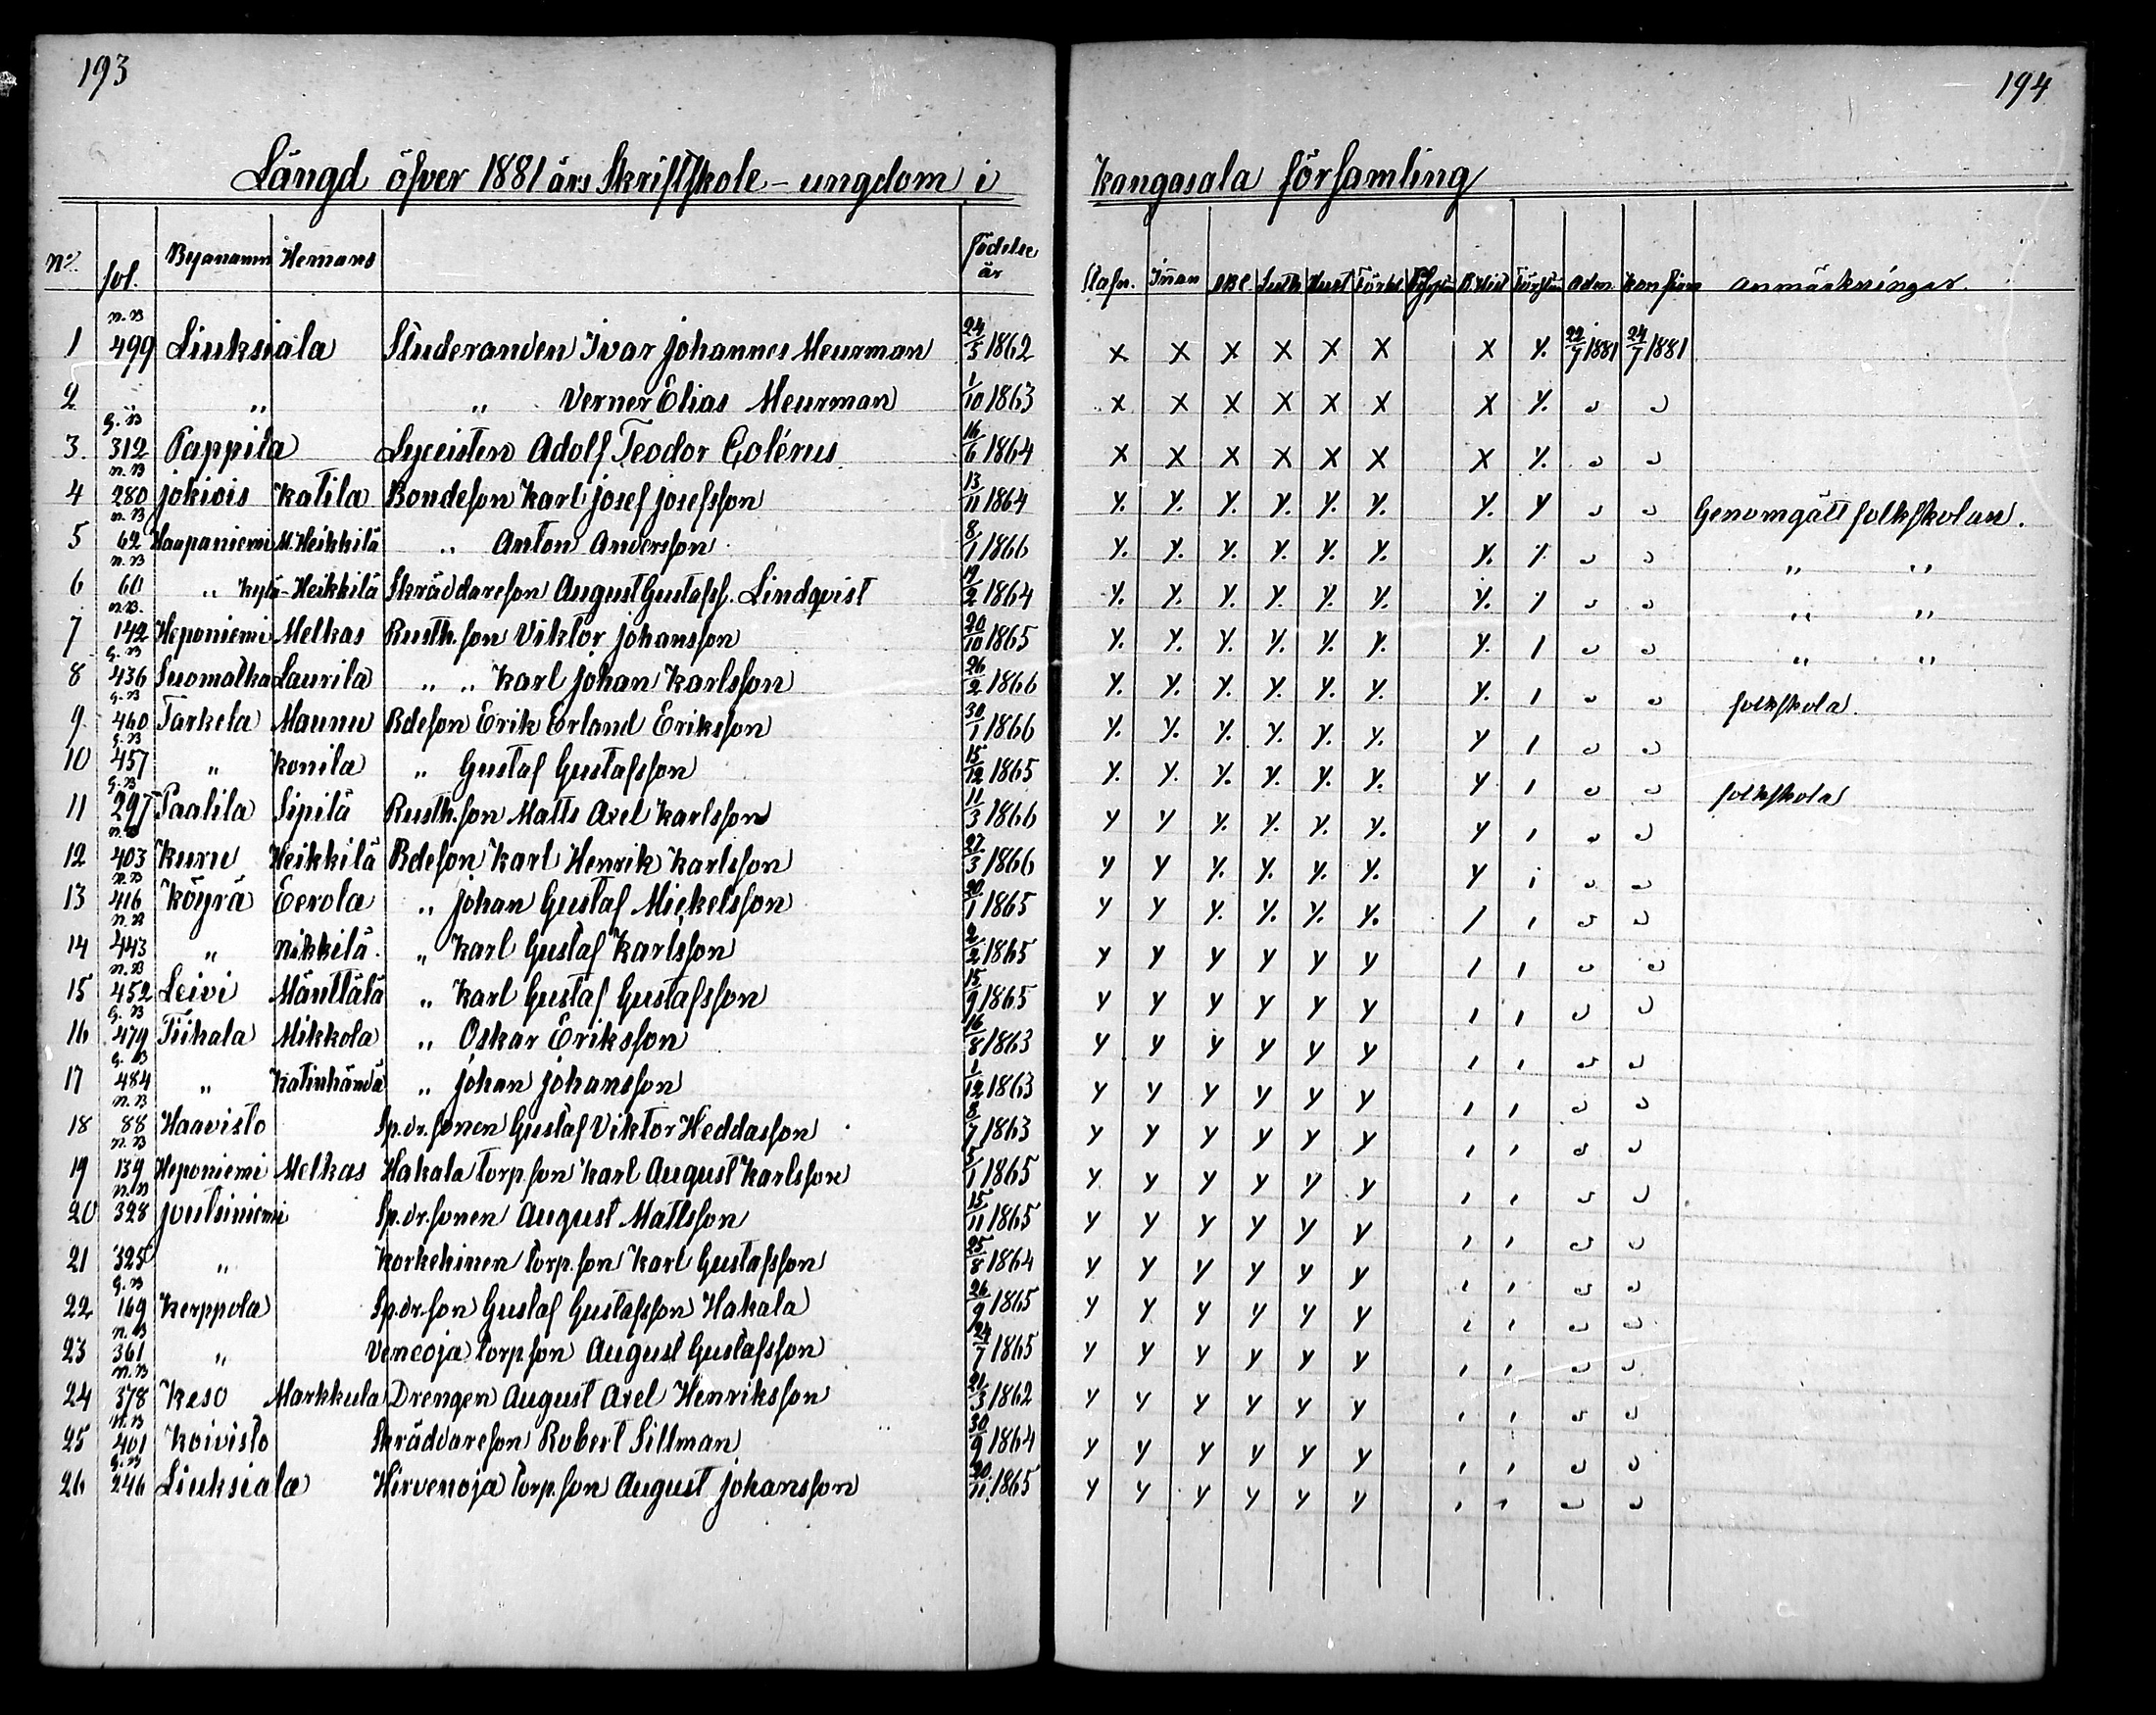 193
Längd öfver 1881 års Skriftskole-ungdom i
No. fol. Byanamn Hemans födelse år
1 n.B 499 Liuksiala Studeranden Ivar Johannes Meurman 24/5 1862
2 " " " Verner Elias Meurman 1/10 1863
3. G.B 312 Pappila Lyceisten Adolf Teodor Colérus 16/6 1864
4 n.B 280 Jokiois Katila Bondeson Karl Josef Josefsson 13/11 1864
5 n.B 62 Haapaniemi M.Heikkilä " Anton Andersson 8/1 1866
6 n.B 60 " Kylä-Heikkilä Skräddareson August Gustafss. Lindqvist 19/2 1864
7 n.B. 142 Heponiemi Melkas Rusth.son Viktor Johansson 20/10 1865
8 G.B 436 Suomatka Laurila " " Karl Johan Karlsson 26/2 1866
9 G.B 460 Tarkela Maunu Bdeson Erik Erland Eriksson 30/1 1866
10 G.B 457 " Konila " Gustaf Gustafsson 15/12 1865
11 G.B 297 Paalila Sipilä Rusth.son Matts Axel Karlsson 11/3 1866
12 n.B 403 Kuru Heikkilä Bdeson Karl Henrik Karlsson 27/3 1866
13 n.B 416 Köyrä Eerola " Johan Gustaf Mickelsson 20/1 1865
14 n.B 443 " Nikkilä " Karl Gustaf Karlsson 2/2 1865
15 n.B 452 Leivi Mänttälä " Karl Gustaf Gustafsson 15/9 1865
16 G.B 479 Tiihala Mikkola " Oskar Eriksson 16/8 1863
17 G.B 484 " Katinhändä " Johan Johansson 1/12 1863
18 n.B 88 Haavisto Sp.dr.sonen Gustaf Viktor Heddasson 8/7 1863
19 n.B 139 Heponiemi Melkas Hakala torp.son Karl August Karlsson 5/1 1865
20 n.B 328 Joutsiniemi Sp.dr.sonen August Mattsson 15/11 1865
21 325 " Korkehinen torp.son Karl Gustafsson 25/8 1864
22 G.B 169 Kerppola Sp.dr.son Gustaf Gustafsson Hakala 26/9 1865
23 n.B 361 " Veneoja torpson August Gustafsson 24/7 1865
24 n.B 378 Keso Markkula Drengen August Axel Henriksson 21/3 1862
25 n.B 401 Koivisto Skräddareson Robert Sillman 30/9 1864
26 G.B 246 Liuksiala Hirvenoja torp.son August Johansson 20/11 1865
194
Kangasala församling
Stafn. Innan ABC. Luth Hust Förkl B.Hist Adm. Konfirm Anmärkningar.
x x x x x x x y. 22/7 1881 24/7 1881
x x x x x x x y. " "
x x x x x x x y. " "
y. y. y. y. y. y. y. y " " Genomgått folkskolan.
y. y. y. y. y. y. y. y " " " "
y. y. y. y. y. y. y. y " " " "
y. y. y. y. y. y. y. 1 " " " "
y. y. y. y. y. y. y. 1 " " folkskola.
y. y. y. y. y. y. y 1 " "
y. y. y. y. y. y. y 1 " " folkskola
y y y. y. y. y. y 1 " "
y y y. y. y. y. y 1 " "
y y y. y. y. y. 1 1 " "
y y y y y y 1 1 " "
y y y y y y 1 1 " "
y y y y y y 1 1 " "
y y y y y y 1 1 " "
y y y y y y 1 1 " "
y y y y y y 1 1 " "
y y y y y y 1 1 " "
y y y y y y 1 1 " "
y y y y y y 1 1 " "
y y y y y y 1 1 " "
y y y y y y 1 1 " "
y y y y y y 1 1 " "
y y y y y y 1 1 " "